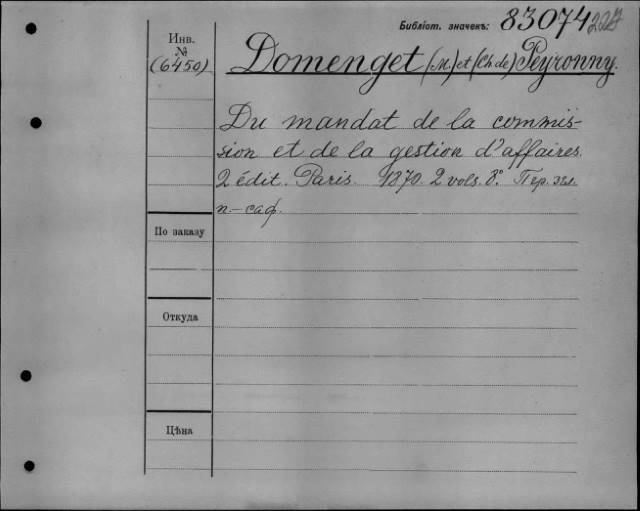 Библіот. значекъ: 83074
Инв.
№
(6450)
Domenget (M.) et (Ch. de) Peyronny.
Du mandat de la commis-
sion et de la gestion d'affaires.
2 édit. Paris. 1870. 2 vols. 8º. Пер.
п.-саф.
По заказу
Откуда
Цѣна